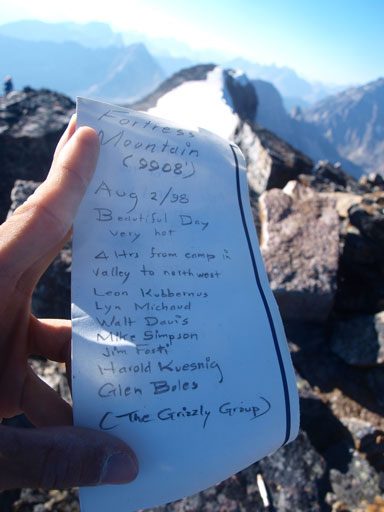 Fortress
Mountain
(9908')
Aug 2/98
Beautiful Day
very hot
4 Hrs from camp in
valley to northwest
Leon Kubbernus
Lyn Michaud
Walt Davis
Mike Simpson
Jim Fosti
Harold Kuesnig
Glen Boles
(The Grizzly Group)